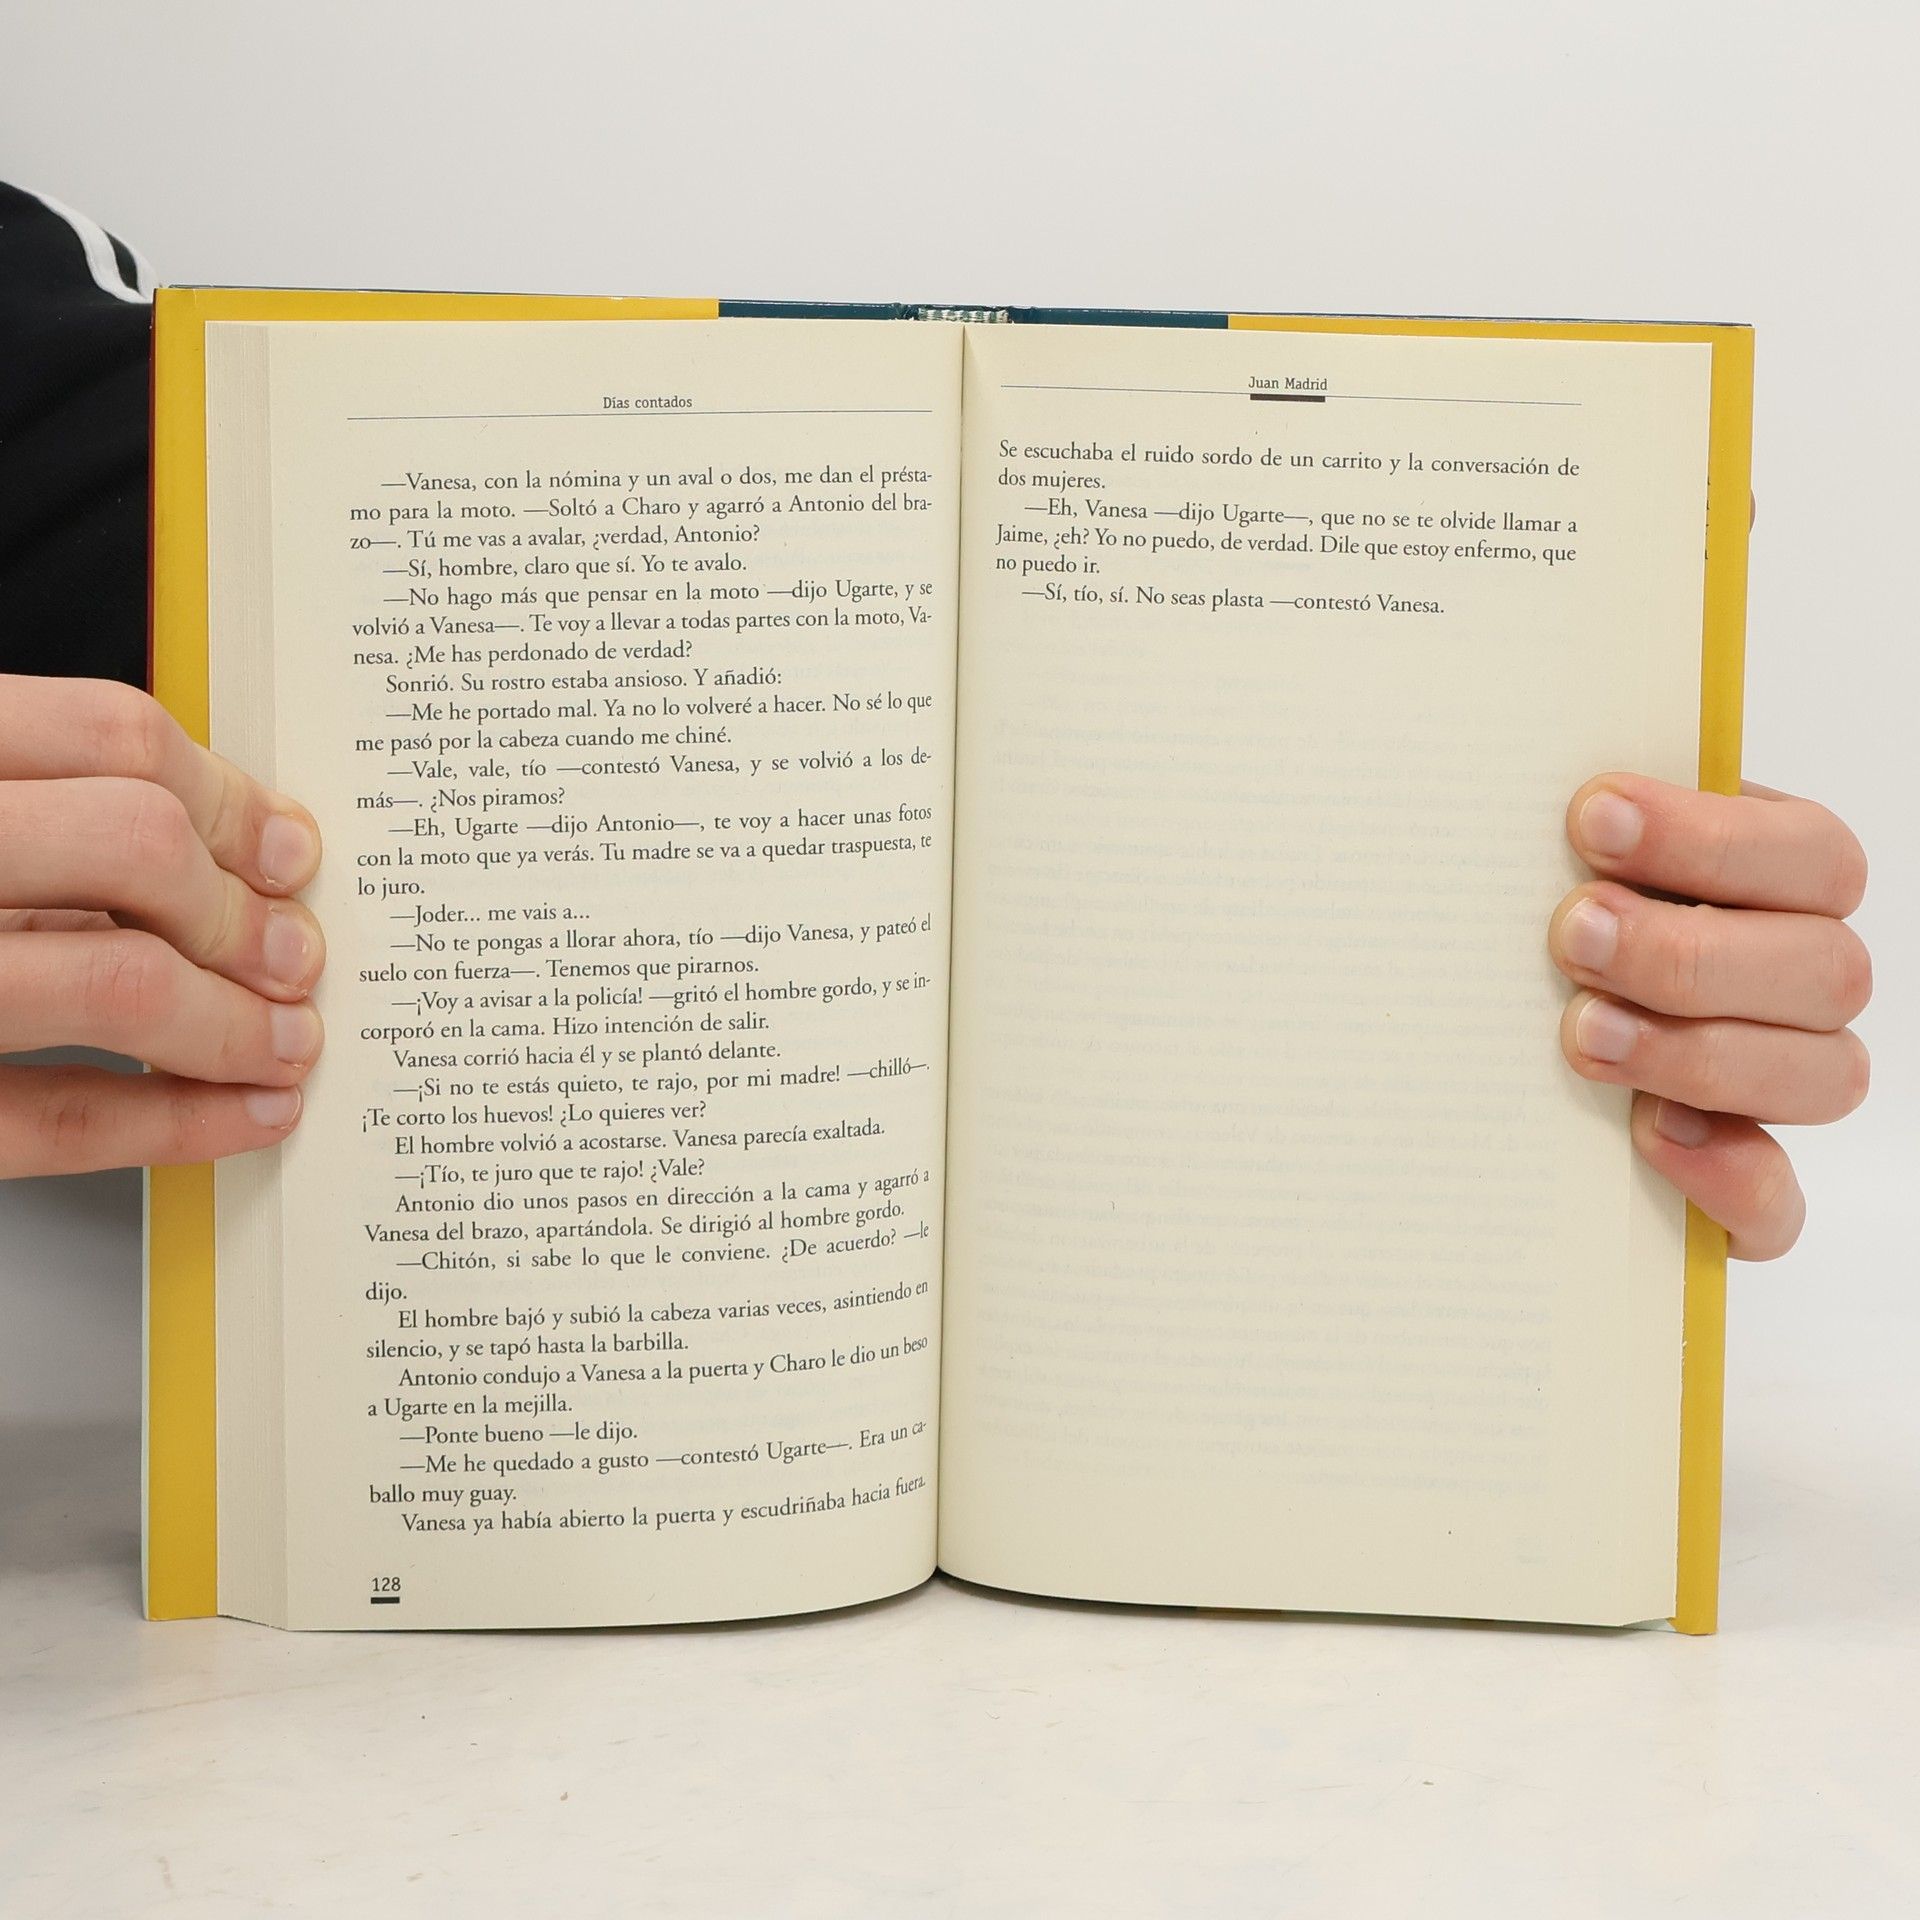 Días contados
—Vanesa, con la nómina y un aval o dos, me dan el présta-
mo para la moto. —Soltó a Charo y agarró a Antonio del bra-
zo—. Tú me vas a avalar, ¿verdad, Antonio?
—Sí, hombre, claro que sí. Yo te avalo.
—No hago más que pensar en la moto —dijo Ugarte, y se
volvió a Vanesa—. Te voy a llevar a todas partes con la moto, Va-
nesa. ¿Me has perdonado de verdad?
Sonrió. Su rostro estaba ansioso. Y añadió:
—Me he portado mal. Ya no lo volveré a hacer. No sé lo que
me pasó por la cabeza cuando me chiné.
—Vale, vale, tío —contestó Vanesa, y se volvió a los de-
más—. ¿Nos piramos?
—Eh, Ugarte —dijo Antonio—, te voy a hacer unas fotos
con la moto que ya verás. Tu madre se va a quedar traspuesta, te
lo juro.
—Joder... me vais a...
—No te pongas a llorar ahora, tío —dijo Vanesa, y pateó el
suelo con fuerza—. Tenemos que pirarnos.
—¡Voy a avisar a la policía! —gritó el hombre gordo, y se in-
corporó en la cama. Hizo intención de salir.
Vanesa corrió hacia él y se plantó delante.
—¡Si no te estás quieto, te rajo, por mi madre! —chilló—.
¡Te corto los huevos! ¿Lo quieres ver?
El hombre volvió a acostarse. Vanesa parecía exaltada.
—¡Tío, te juro que te rajo! ¿Vale?
Antonio dio unos pasos en dirección a la cama y agarró a
Vanesa del brazo, apartándola. Se dirigió al hombre gordo.
—Chitón, si sabe lo que le conviene. ¿De acuerdo? —le
dijo.
El hombre bajó y subió la cabeza varias veces, asintiendo en
silencio, y se tapó hasta la barbilla.
Antonio condujo a Vanesa a la puerta y Charo le dio un beso
a Ugarte en la mejilla.
—Ponte bueno —le dijo.
—Me he quedado a gusto —contestó Ugarte—. Era un ca-
ballo muy guay.
Vanesa ya había abierto la puerta y escudriñaba hacia fuera.
128
Juan Madrid
Se escuchaba el ruido sordo de un carrito y la conversación de
dos mujeres.
—Eh, Vanesa —dijo Ugarte—, que no se te olvide llamar a
Jaime, ¿eh? Yo no puedo, de verdad. Dile que estoy enfermo, que
no puedo ir.
—Sí, tío, sí. No seas plasta —contestó Vanesa.